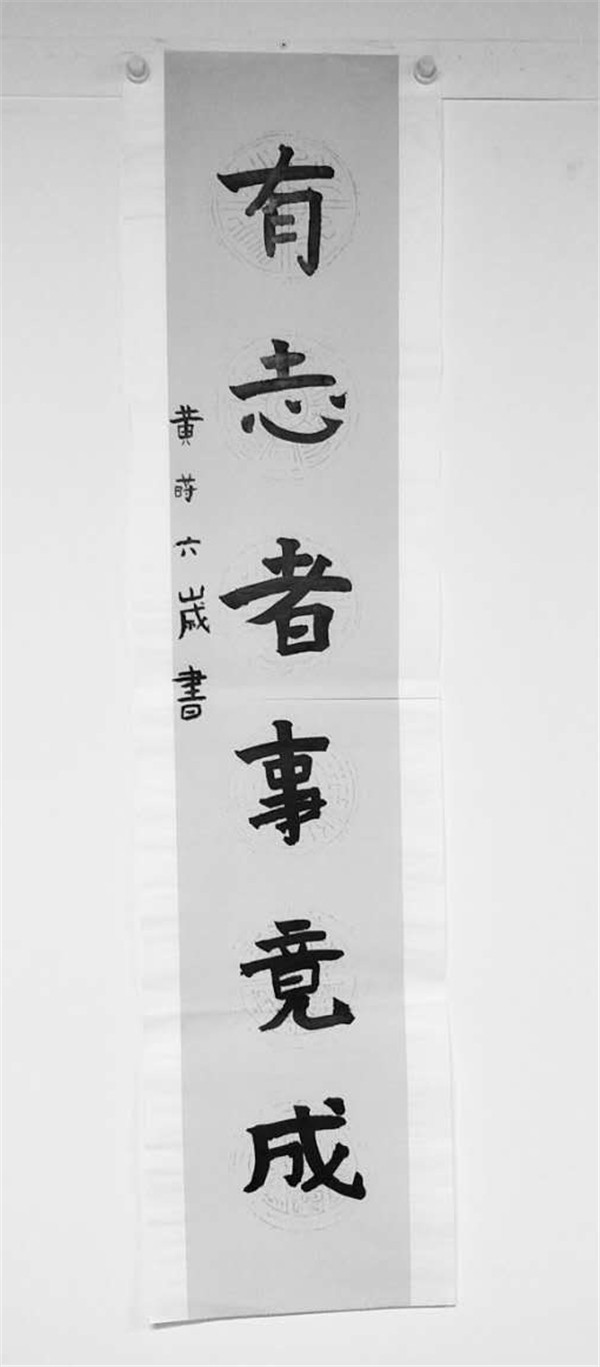 有志者事竟成
黄莳六岁書